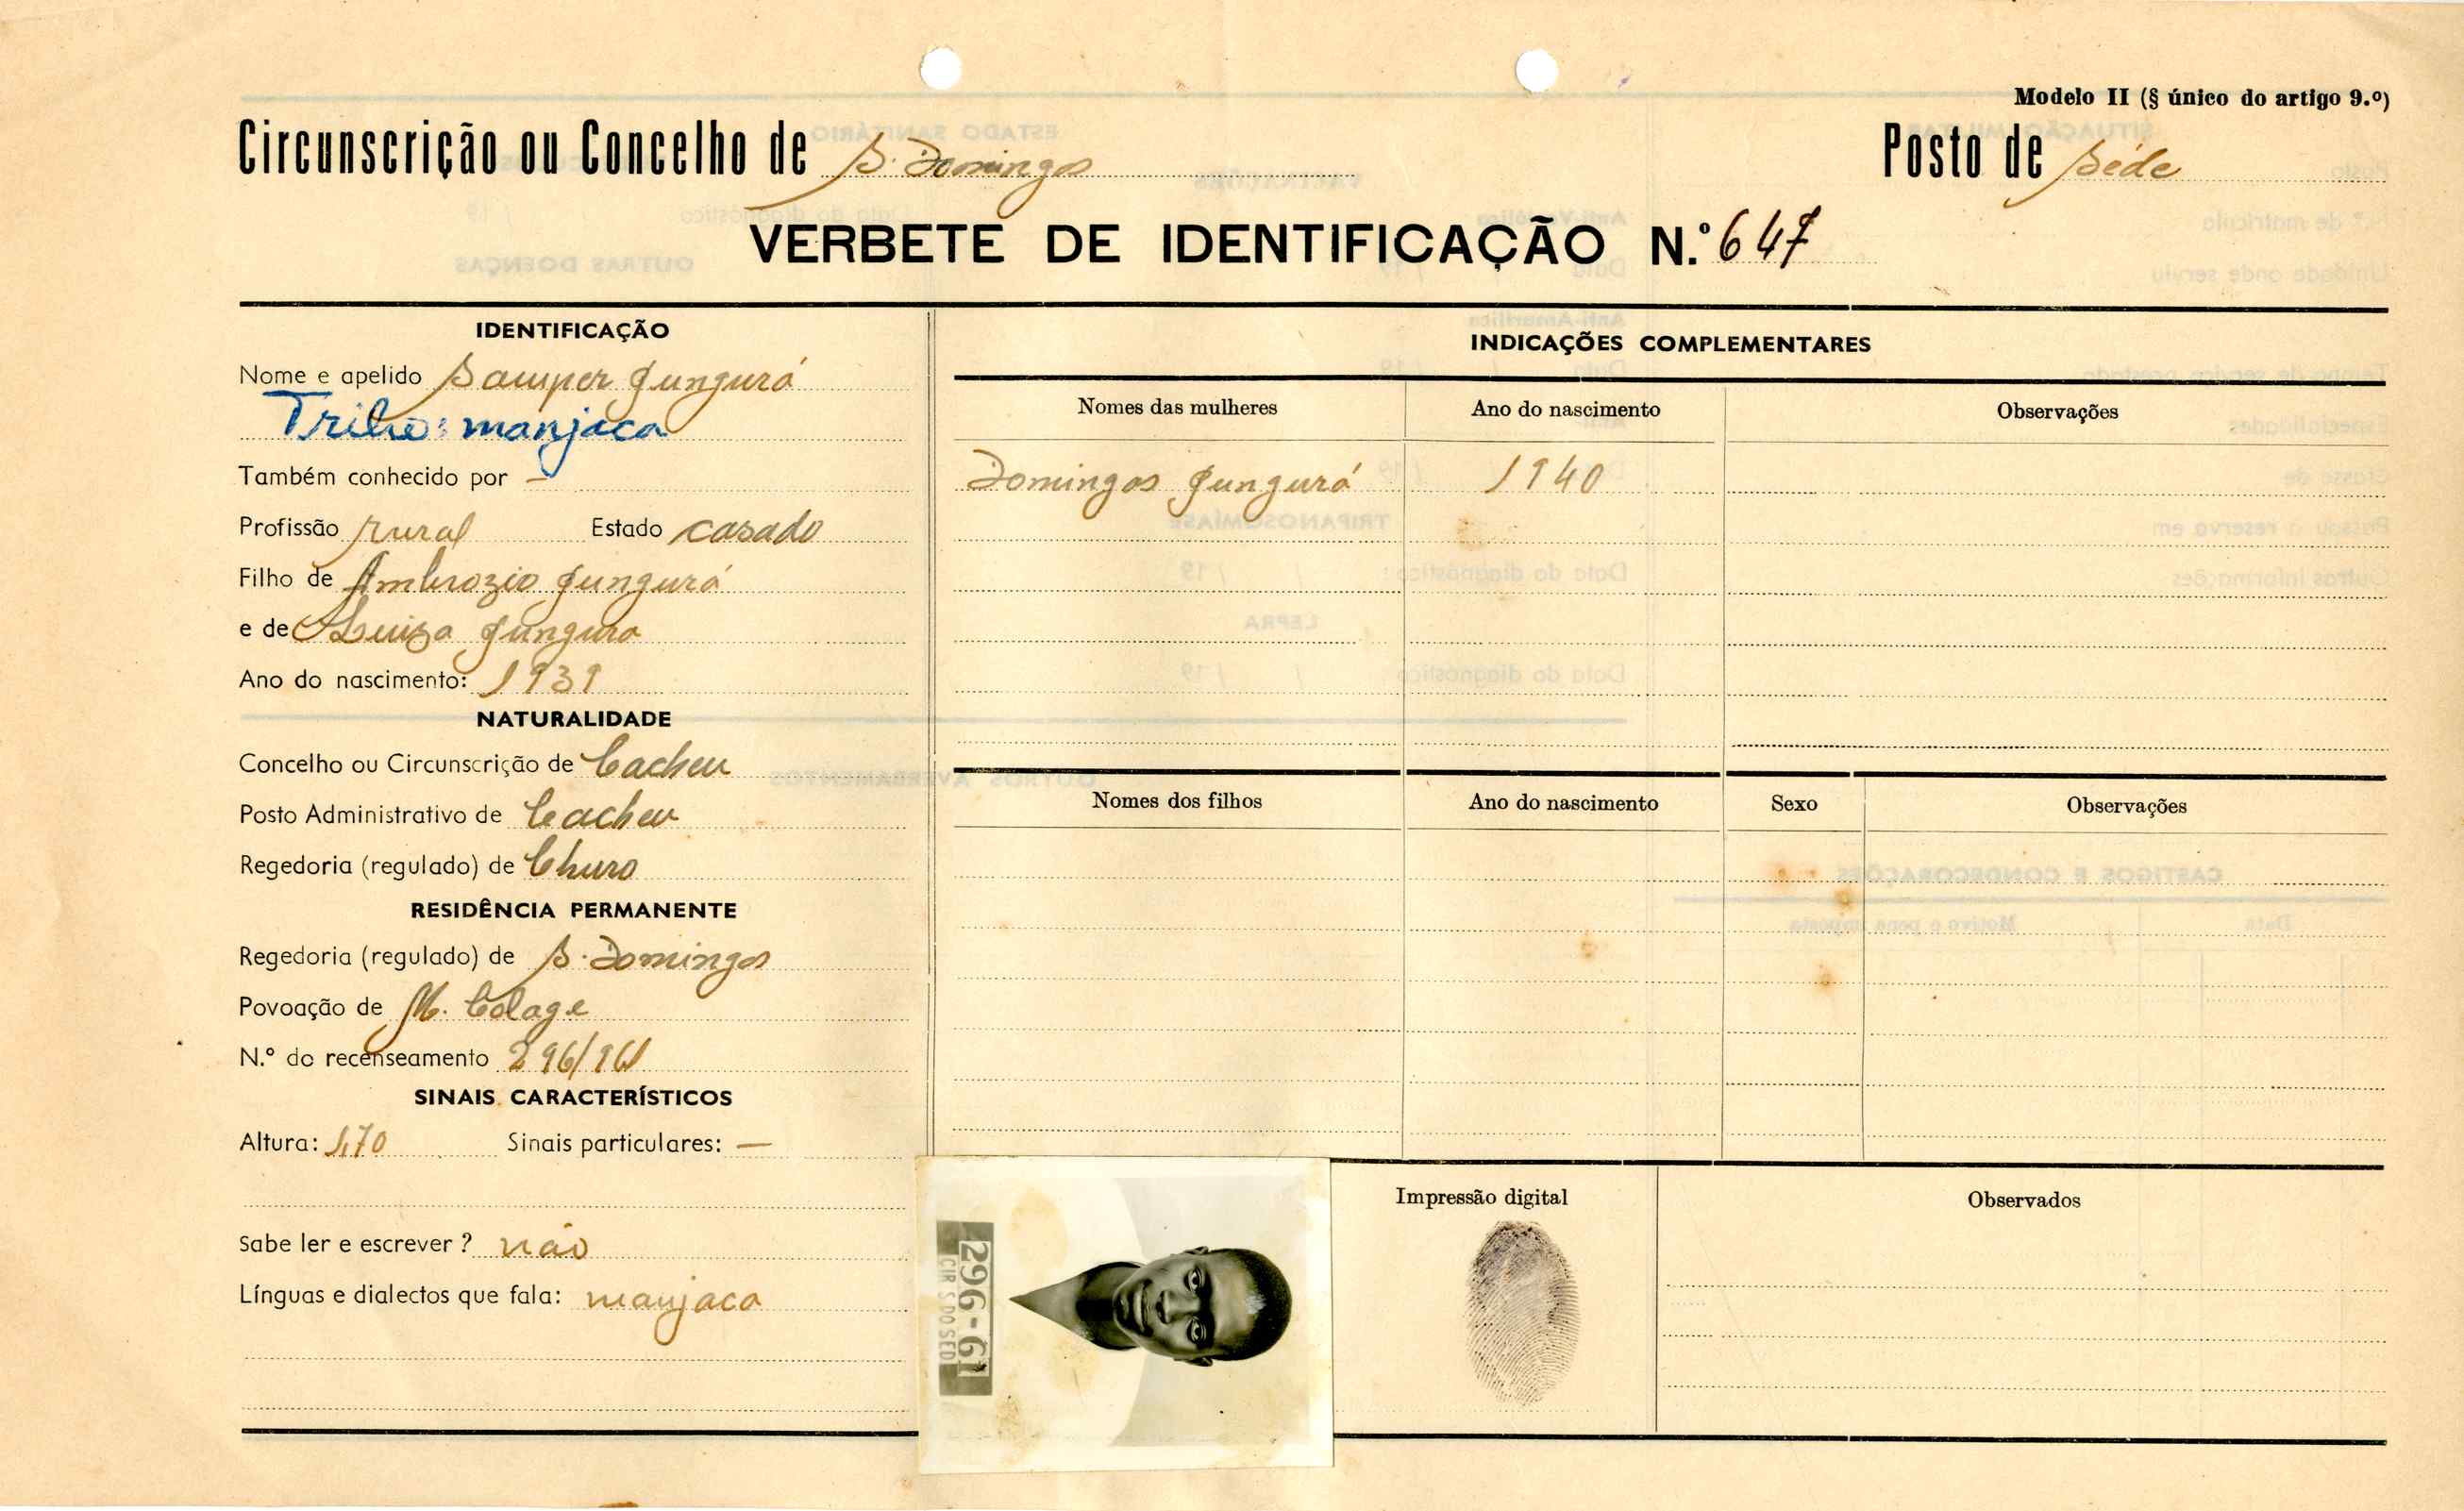 Modelo II (§ único do artigo 9.º)
Circunscrição ou Concelho de S. Domingos
Posto de Séde
VERBETE DE IDENTIFICAÇÃO N.º 647
IDENTIFICAÇÃO
Nome e apelido Samper Gungurá
Tribo: manjaca
Também conhecido por —
Profissão rural Estado casado
Filho de Ambrozio Gungurá
e de Luiza Gungura
Ano do nascimento: 1939
NATURALIDADE
Concelho ou Circunscrição de Cacheu
Posto Administrativo de Cacheu
Regedoria (regulado) de Churo
RESIDÊNCIA PERMANENTE
Regedoria (regulado) de S. Domingos
Povoação de M. Colage
N.º do recenseamento 296/961
SINAIS CARACTERÍSTICOS
Altura: 1,70 Sinais particulares: —
Sabe ler e escrever? não
Línguas e dialectos que fala: manjaca
INDICAÇÕES COMPLEMENTARES
Nomes das mulheres Ano do nascimento Observações
Domingas Gungurá 1940
Nomes dos filhos Ano do nascimento Sexo Observações
296-61
CIR SDOSED
Impressão digital
Observados